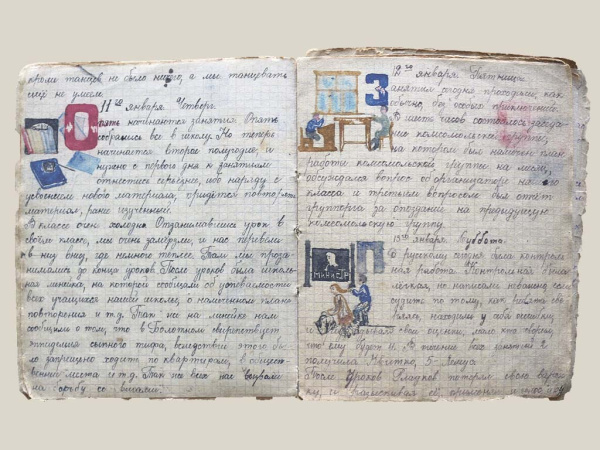 кроме танцев не было ничего, а мы танцевать
ещё не умеем.
11го января. Четверг.
Опять начинаются занятия. Опять
собрались все в школу. Но теперь
начинается второе полугодие, и
нужно с первого дня к занятиям
отнестись серьёзнее, ибо наряду с
усвоением нового материала, придётся повторять
материал, ранее изученный.
В классе очень холодно. Отзанимавшись урок в
своём классе, мы очень замёрзли, и нас перевели
в низ, где немного теплее. Там мы прозанимались
до конца уроков. После уроков была школьная
линейка, на которой сообщали об успеваемости
всех учащихся нашей школы, о намеченном плане
повторения и т.д. Так же на линейке нам
сообщили о том, что в Болотном свирепствует
эпидемия сыпного тифа, вследствие этого было
запрещено ходить по квартирам, в общественные
места и т.д. Так же всех нас
на борьбу со вшами.
12го января. Пятница
Занятия сегодня проходили, как
обычно, без особых приключений.
В шесть часов состоялось заседание
комсомольской группы,
на котором был намечен план
работы комсомольской группы на месяц,
обсуждался вопрос об организаторе на
класса и третьим вопросом был отчёт
группорга за опоздания на предыдущую
комсомольскую группу.
13го января. Суббота.
По русскому сегодня была контрольная
работа. Контрольная была
лёгкая, но написали неважно,
судить по тому, как ребята
находили у себя ошибки,
и свои оценки, мало кто говорил,
что ему будет 4. В течении всех занятий 2
получила 5
После уроков потерял свою
ку, и разыскивая её,
МИНИСТР